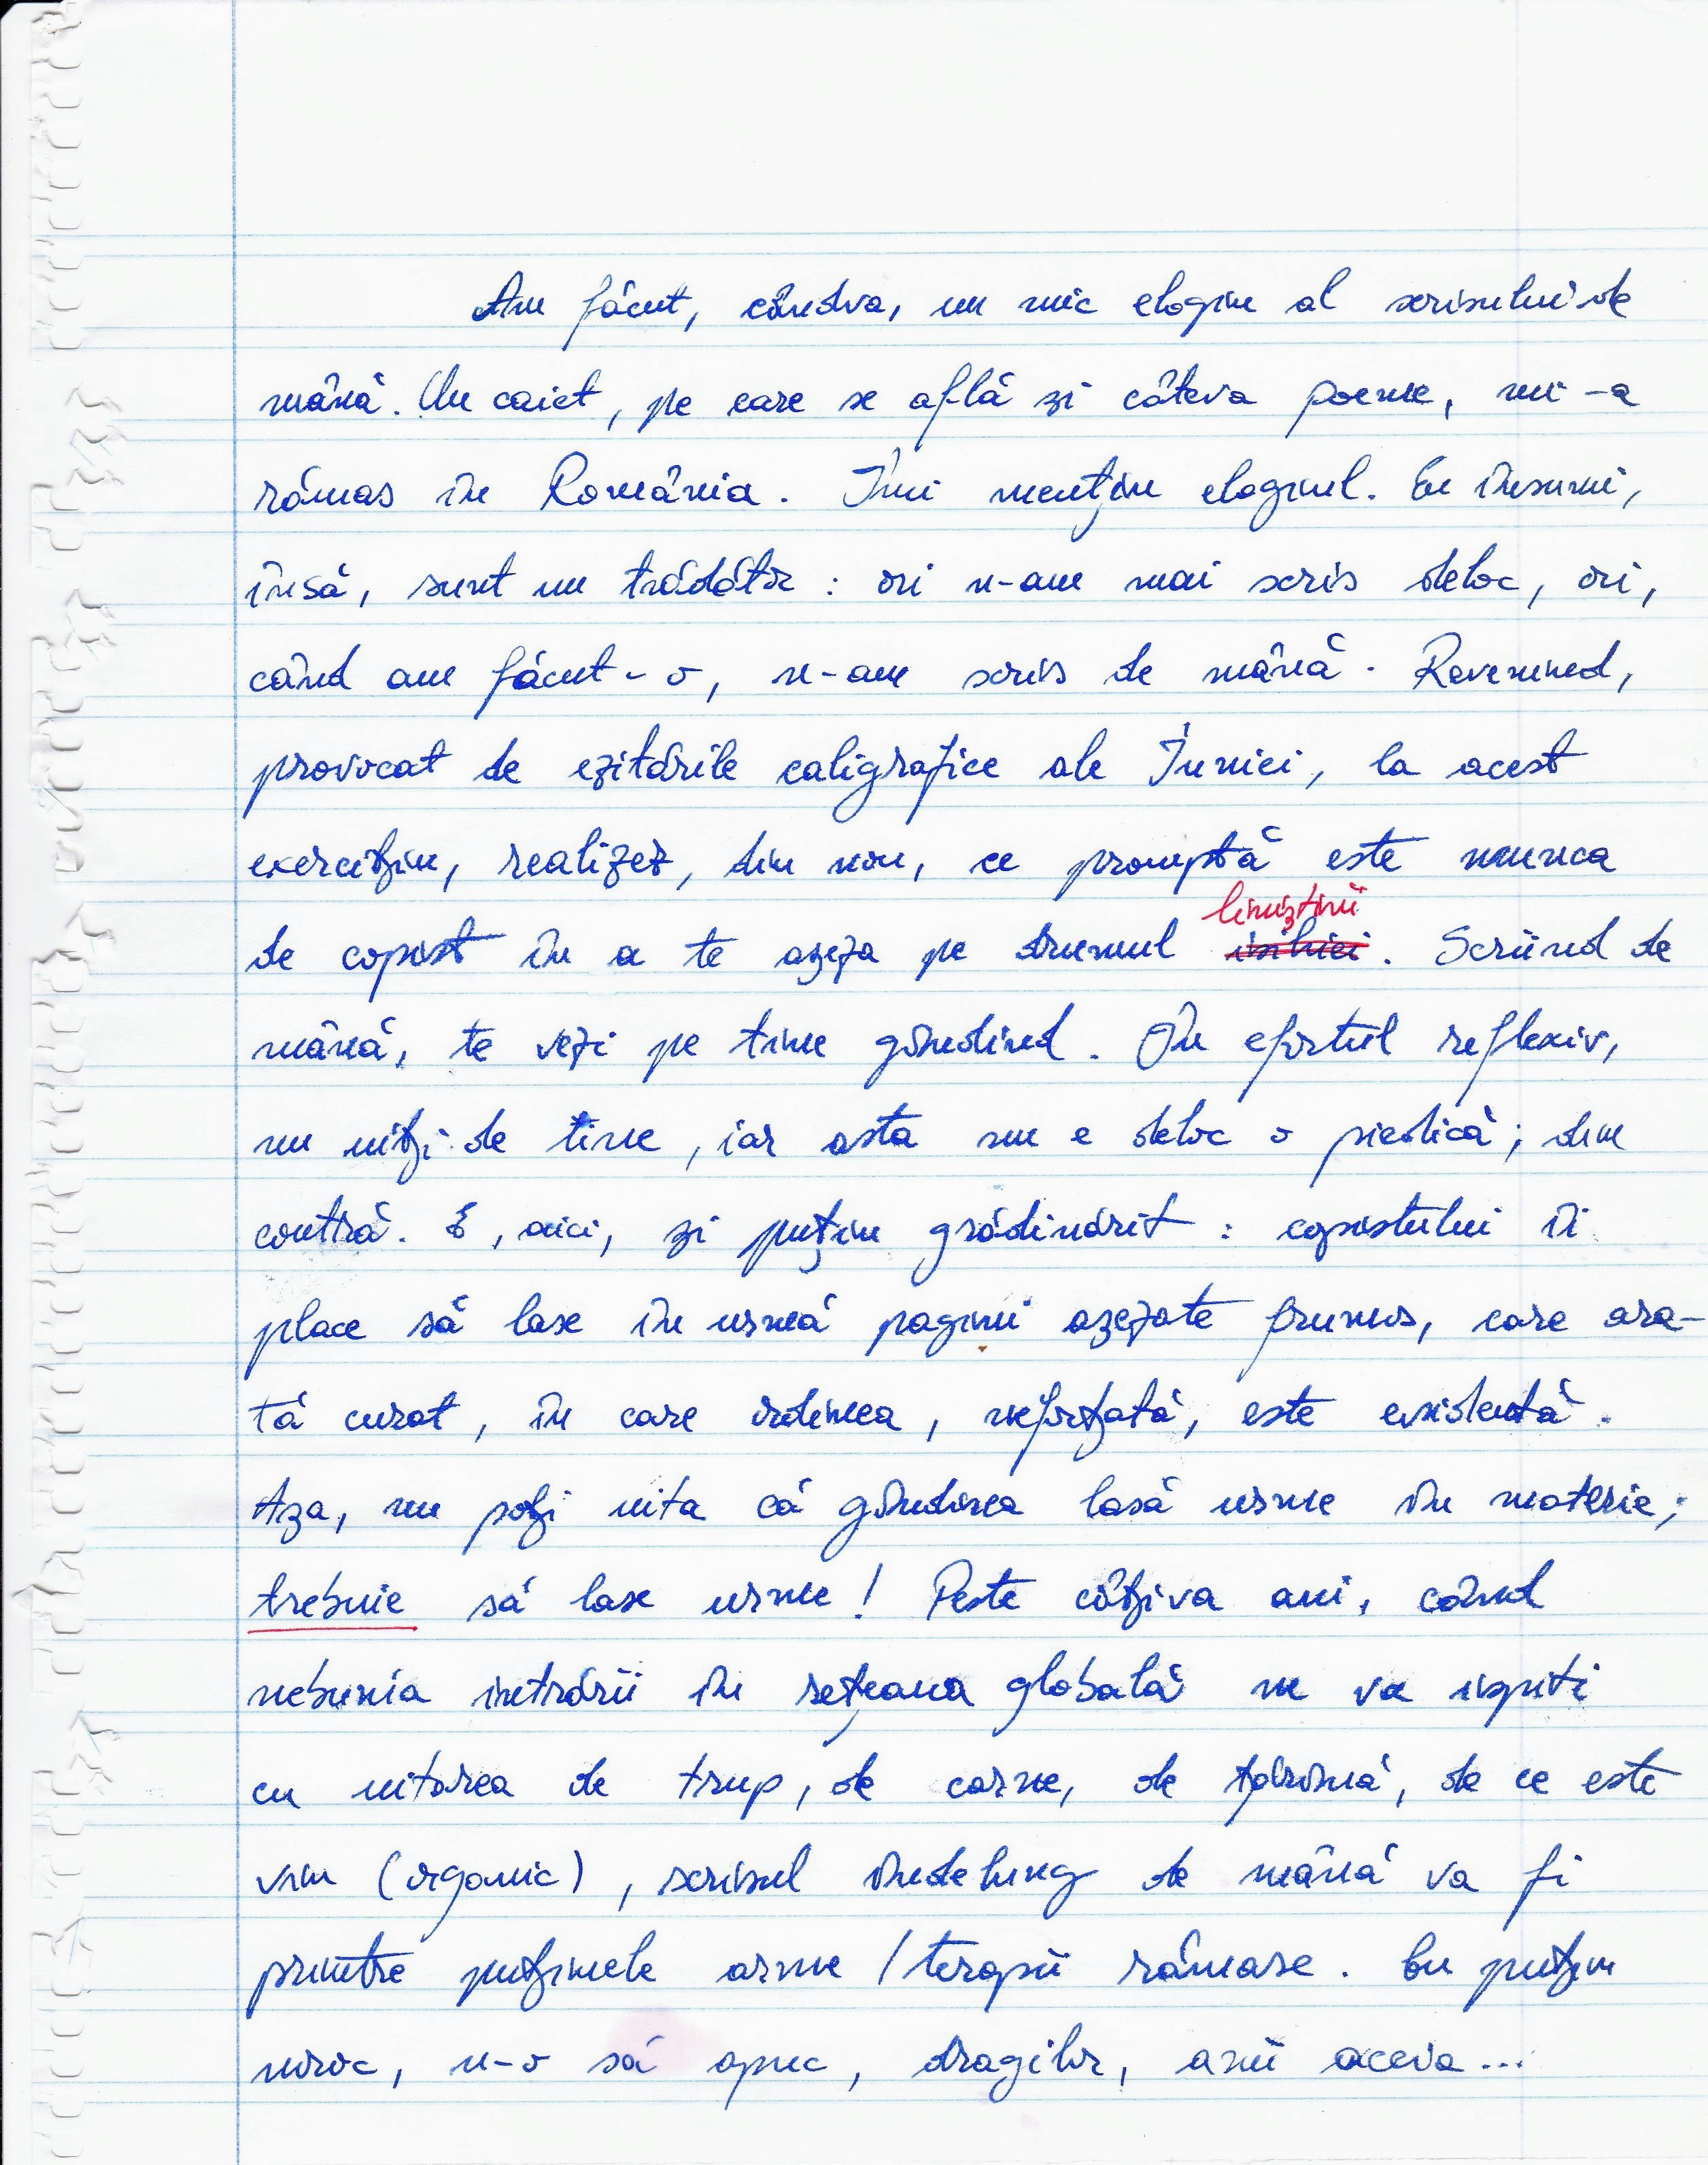 Am făcut, cândva, un mic elogiu al scrisului de
mână. Un caiet, pe care se află și câteva poeme, mi-a
rămas în România. Îmi mențin elogiul. Eu însumi,
însă, sunt un trădător: ori n-am mai scris deloc, ori,
când am făcut-o, n-am scris de mână. Revenind,
provocat de ezitările caligrafice ale Inimii, la acest
exercițiu, realizez, din nou, ce promptă este munca
liniștirii
de copist în a te așeza pe drumul isihiei. Scriind de
mână, te vezi pe tine gândind. În efortul reflexiv,
nu uiți de tine, iar asta nu e deloc o piedică; din
contră. E, aici, și puțin grădinărit: copistului îi
place să lase în urmă pagini așezate frumos, care ara-
tă curat, în care ordinea, neforțată, este evidentă.
Așa, nu poți uita că gândirea lasă urme în materie;
trebuie să lase urme! Peste câțiva ani, când
nebunia intrării în rețeaua globală ne va ispiti
cu uitarea de trup, de carne, de țărână, de ce este
viu (organic), scrisul îndelung de mână va fi
printre puținele arme / terapii rămase. Cu puțin
noroc, n-o să apuc, dragilor, anii aceia...